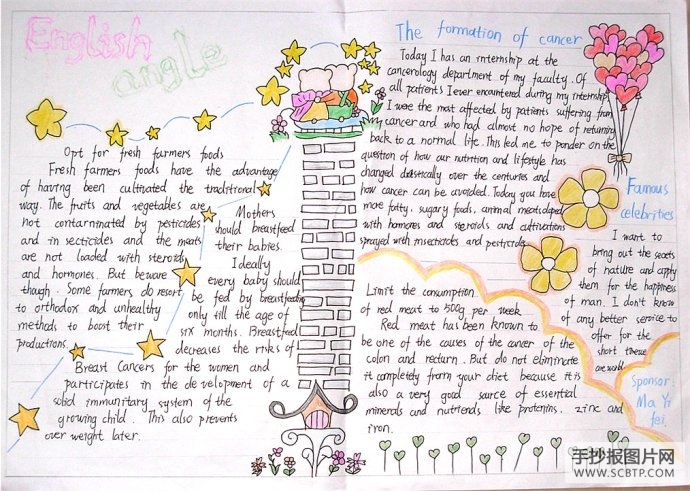 English
angle
Opt for fresh farmers foods
Fresh farmers foods have the advantage
of having been cultivated the traditronal
way. The fruits and vegetables are
not contarninated by pesticides
and in secticides and the meats
are not loaded with steroids
and hormones. But beware
though. Some farmers do resort
to orthodox and unhealthy
methods to boost their
productions.
Mothers
should breastfeed
their babies.
Ideally
every baby should
be fed by breastfeeding
only till the age of
six months. Breastfeed
decreases the risks of
Breast Cancers for the women and
participates in the development of a
solid immunitary system of the
growing child. This also prevents
over weight later.
The formation of cancer
Today I has an internship at the
cancerology department of my faculty. Of
all patients I ever encountered during my internship,
I were the most affected by patients suffering from
cancer and who had almost no hope of returning
back to a normal life. This led me to ponder on the
question of how our nutrition and lifestyle has
changed drastically over the centuries and
how cancer can be avoided. Today you have
more fatty, sugary foods, animal meats doped
with hormones and steroids and cultivations
sprayed with insecticides and pestricides.
Limit the consumption
of red meat to 500g per week
Red meat has been known to
be one of the causes of the cancer of the
colon and rectum. But do not eliminate
it completely from your diet because it is
also a very good source of essential
minerals and nutriends like protenins, zinc and
iron.
Famous
celebrities
I want to
bring out the secrets
of nature and apply
them for the happiness
of man. I don't know
of any better service to
offer for the
short
we
Sponsor:
Ma Yi
fei.
手抄报图片网
WWW.SCBTP.COM